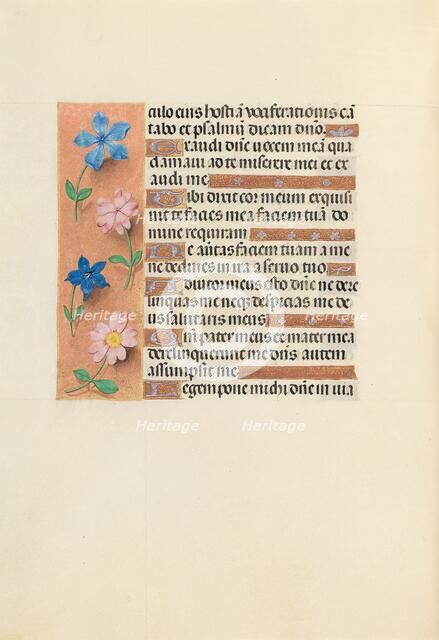 culo eius hostiā vociferationis cā
tabo et psalmū dicam dn̄o.
Exaudi dn̄e vocem meā qua
clamaui ad te miserere mei et ex
audi me
Tibi dixit cor meum exquisi
uit te facies mea faciem tuā do
mine requiram
Ne auertas faciem tuam a me
ne declines in ira a seruo tuo.
Adiutor meus esto dn̄e ne dere
linquas me neqꝫ despicias me de
us salutaris meus
Qm̄ pater meus et mater mea
derelinquerunt me dn̄s autem
assumpsit me
Legem pone michi dn̄e in uia
Heritage Heritage
Heritage Heritage